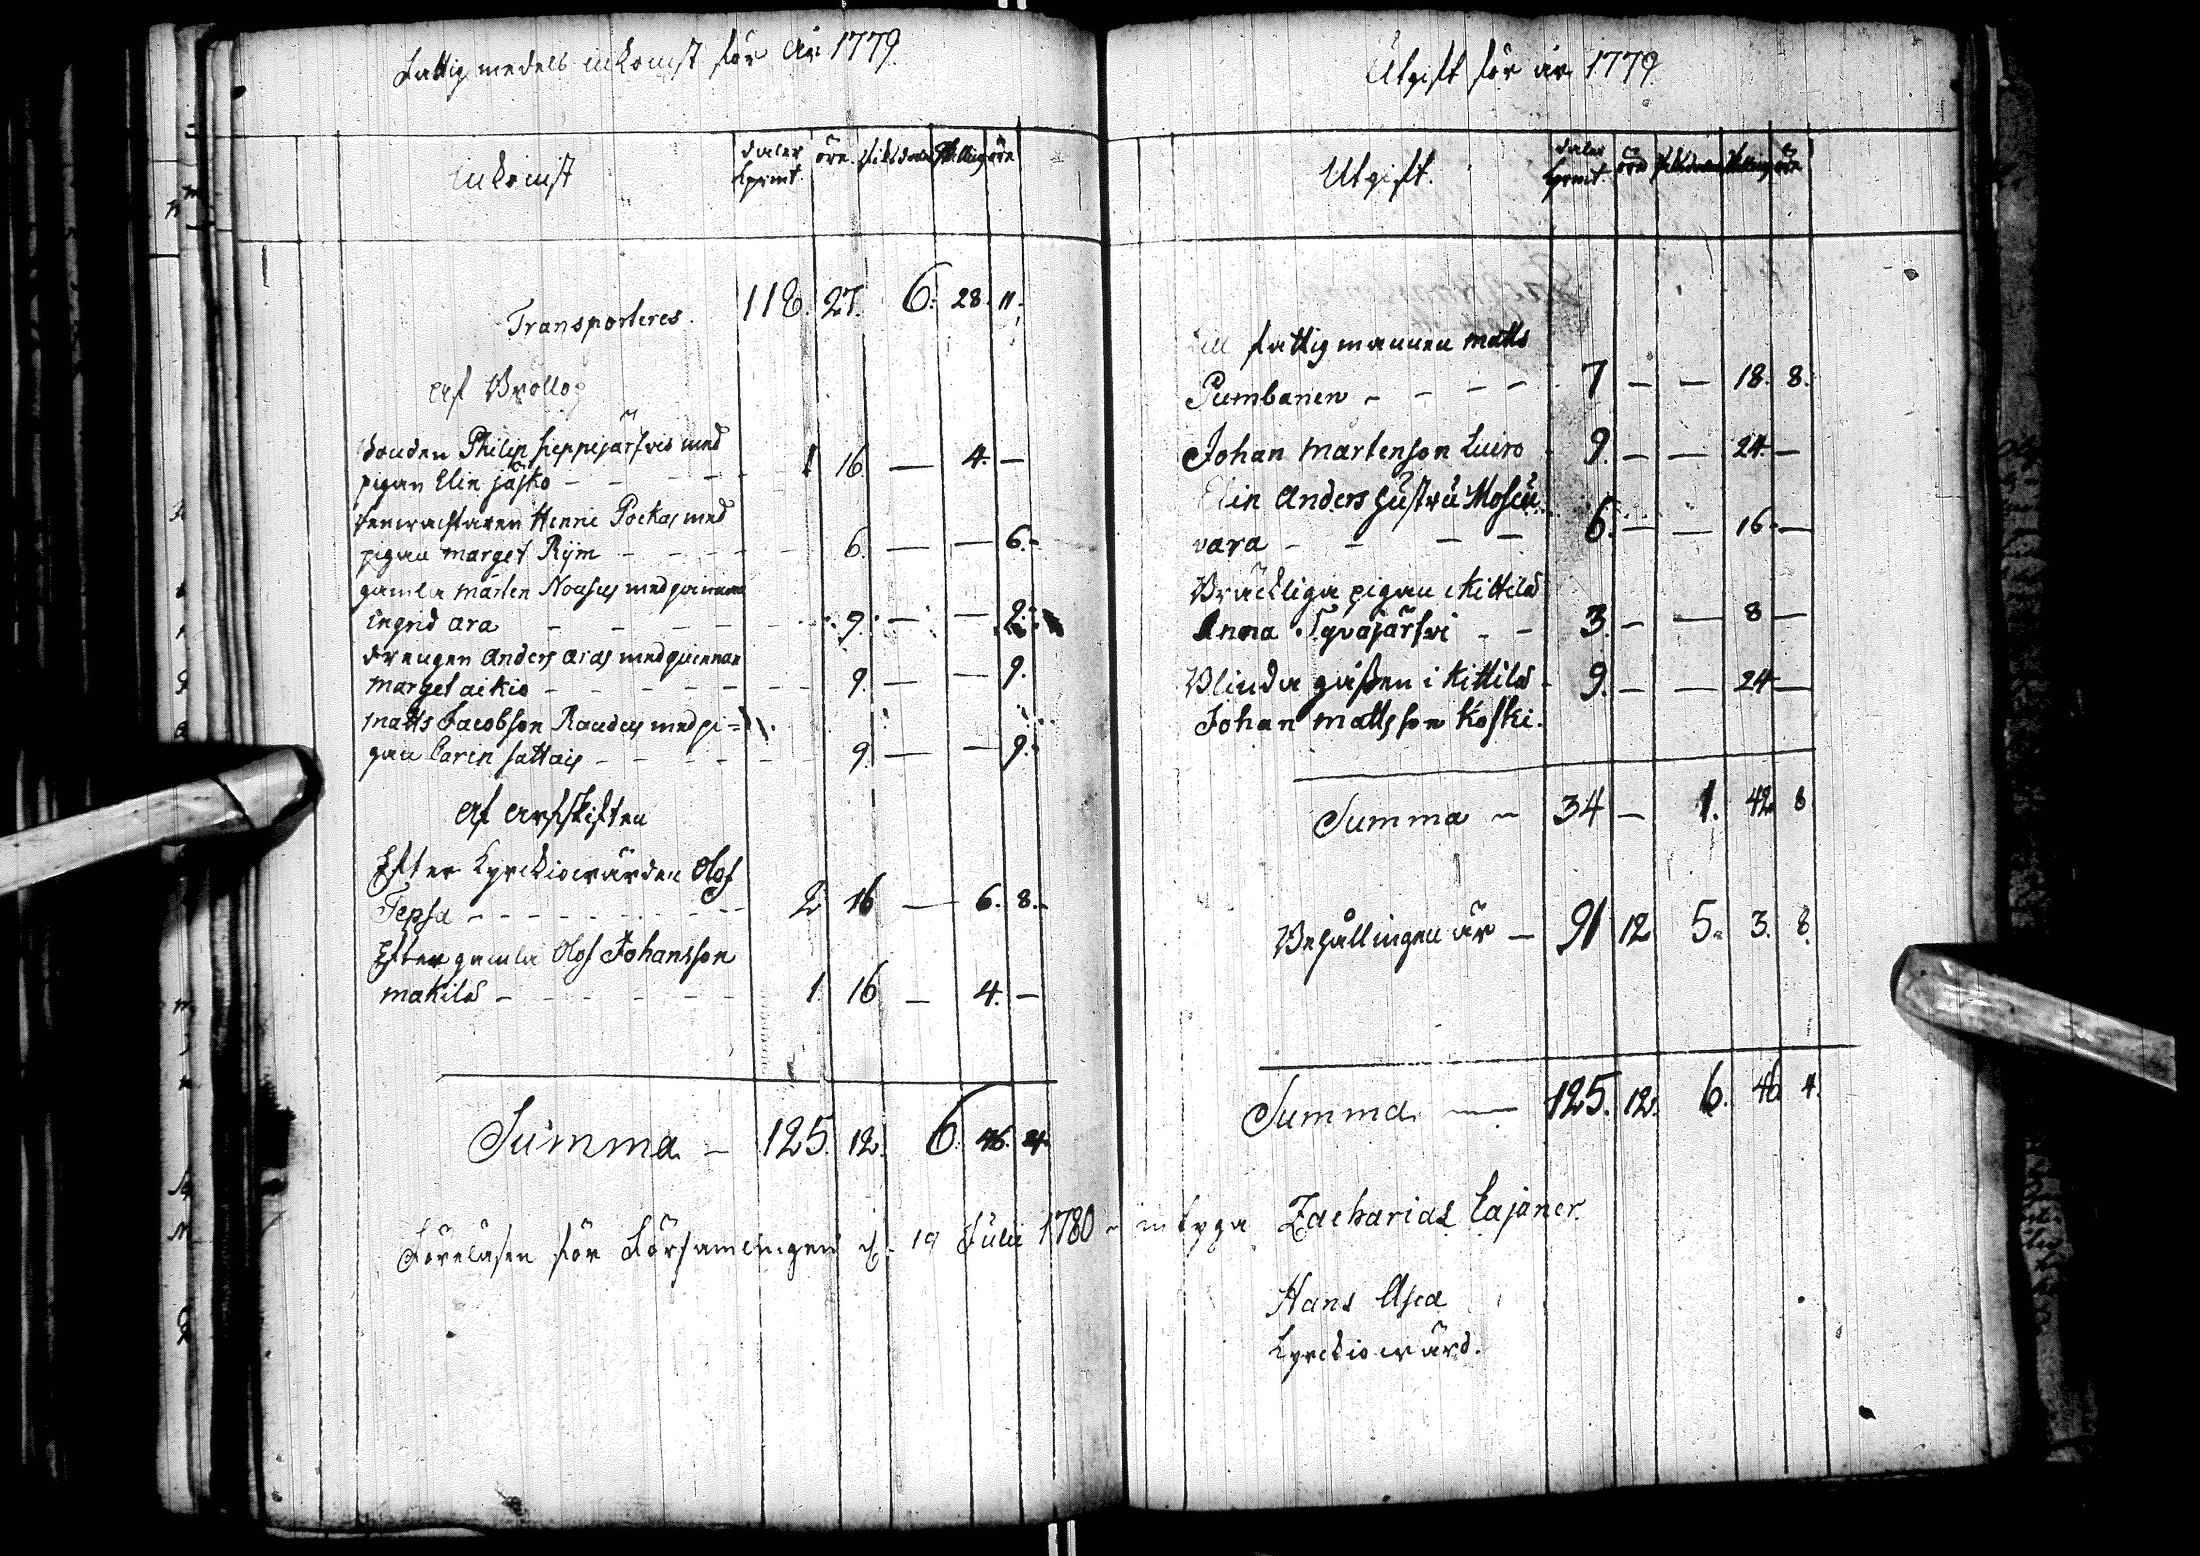 Fattig medels inkomst för År 1779
inkomst daler kpmt. öre. Riksdaler skilling öre
Transporteres. 118. 27. 6. 28. 11.
Af Bröllop
Bonden Philip med
pigan Elin Jäskö - - - - 1 16 — 4. —
Henric Pockas med
pigan marget Rym - - - - 6. — — 6. -
gamla mårten med qvinnan
Ingrid ara - - - - 9. — — 2.
drengen Anders aras med qvinnan
marget aikio - - - - 9. — — 9.
matts Jacobson med pi=
gan Carin sattais - - - - 9. — — 9.
Af Arfskiften
Efter Kyrckiowärden Olof
Tepsa - - - - 2 16 — 6. 8. -
Efter gamla Olof Johansson
makila - - - - 1. 16 — 4. —
Summa — 125. 12. 6. 46. 4.
Föreläsen för Församlingen d. 19 Julii 1780 - intyga
Utgift för år 1779
Utgift. daler kpmt. öre Riksdaler skilling öre
till fattig mannen matts
Pumbanen - - - - 7 — — 18. 8.
Johan mårtenson Luiro 9. — — 24 —
Elin Anders hustru
vara - - - - 6. — — 16 —
Bräckliga pigan i Kittilä
Anna - - 3. — — 8 —
Blinda gåssen i Kittilä - 9. — — 24 —
Johan mattsson Koski.
Summa — 34 — 1. 42 8
Behållningen är — 91 12 5. 3. 8.
Summa — 125. 12. 6. 46 4.
Zacharias Cajaner.
Hans
Kyrckiowärd.